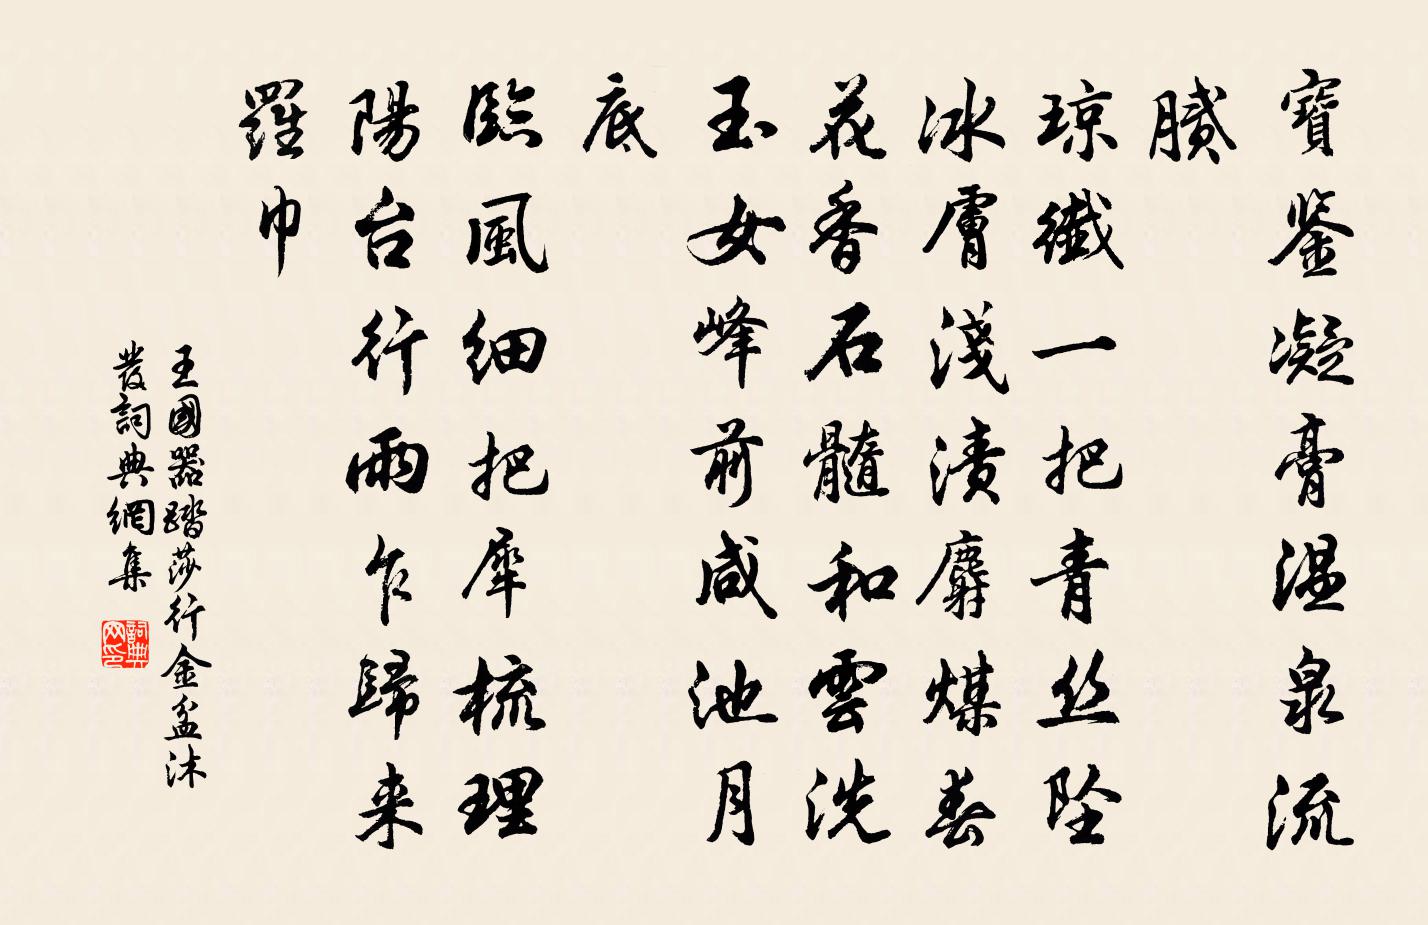 寶鉴凝膏温泉流
膩
琼纖一把青丝坠
冰膚淺漬麝煤春
花香石髓和雲洗
玉女峰前咸池月
底
臨風細把犀梳理
陽台行雨乍歸来
羅巾
王國器踏莎行金盆沐
發詞典網集
詞典
网印